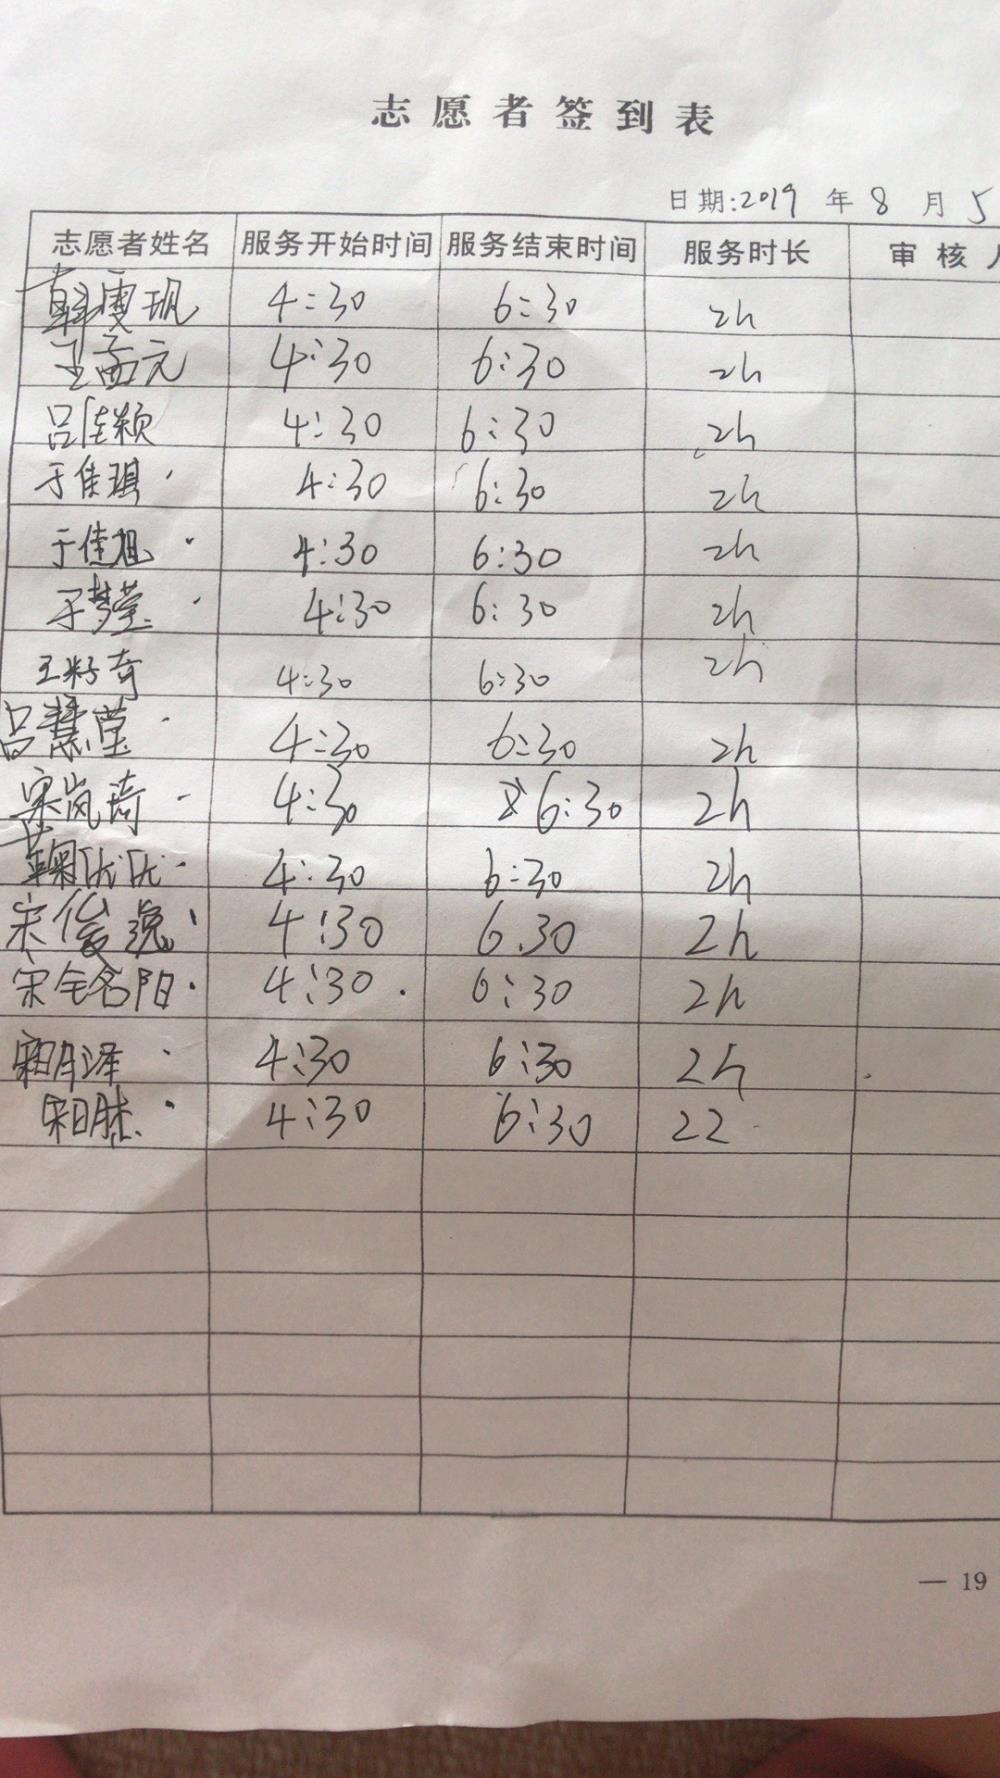 志愿者签到表
日期:2019 年 8 月 5
志愿者姓名 服务开始时间 服务结束时间 服务时长 审核人
4:30 6:30 2h
王孟元 4:30 6:30 2h
吕佳颖 4:30 6:30 2h
于佳琪 4:30 6:30 2h
于佳旭 4:30 6:30 2h
于梦莹 4:30 6:30 2h
王籽奇 4:30 6:30 2h
吕慧莹 4:30 6:30 2h
宋岚琦 4:30 6:30 2h
4:30 6:30 2h
宋俊逸 4:30 6.30 2h
宋 阳 4:30 6:30 2h
泽 4:30 6:30 2h
4:30 6:30 22
— 19